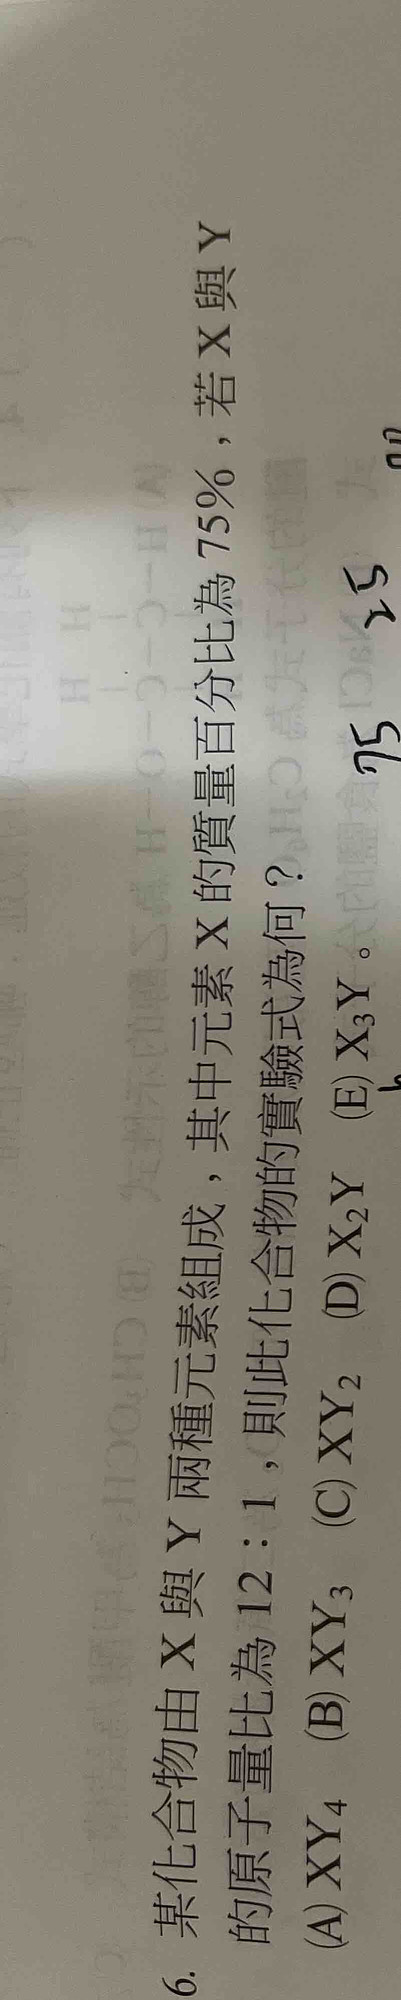 6. 某化合物由 X 與 Y 兩種元素組成，其中元素 X 的質量百分比為 75%，若 X 與 Y
的原子量比為 12：1，則此化合物的實驗式為何？
(A) XY₄ (B) XY₃ (C) XY₂ (D) X₂Y (E) X₃Y。
75 25